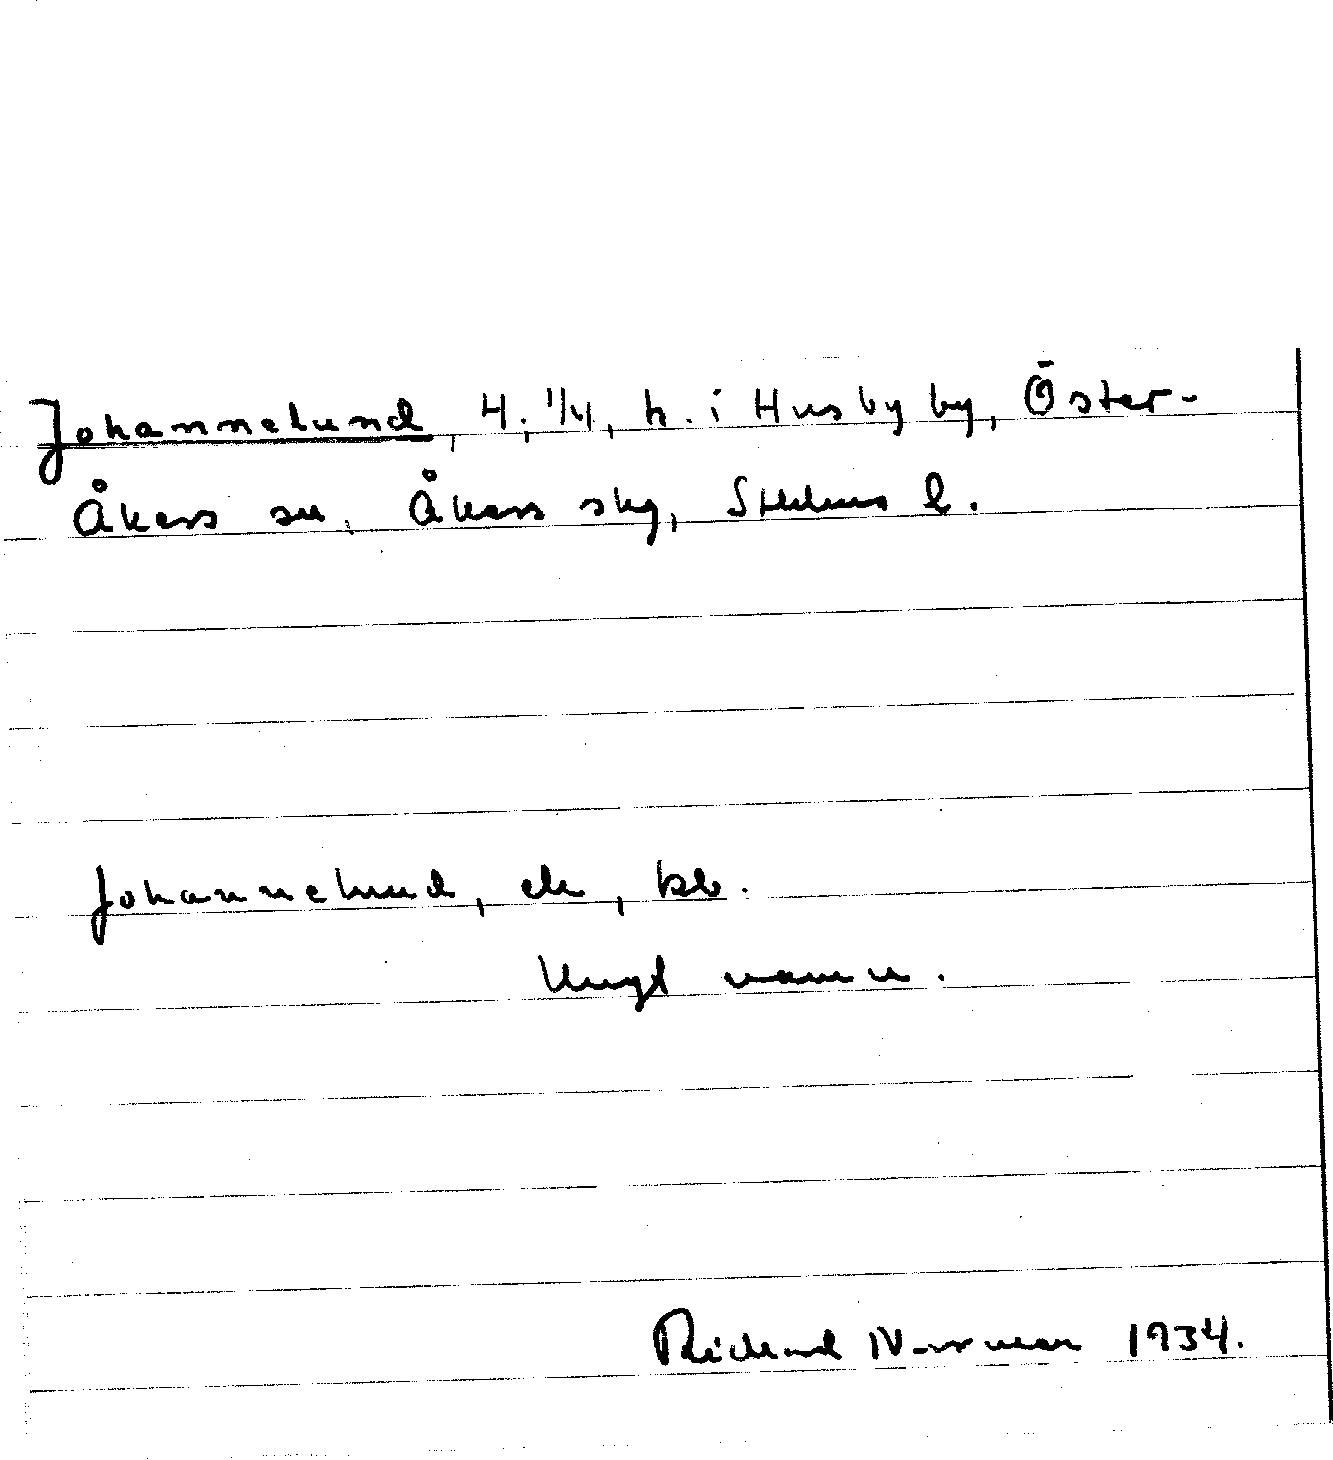 Johannelund, 4, 1/4, h. i Husby by, Öster-
Åkers sn, Åkers skg, Sthlms l.
Johannelund, ek, kb.
Ungt namn.
Richard Norrman 1934.